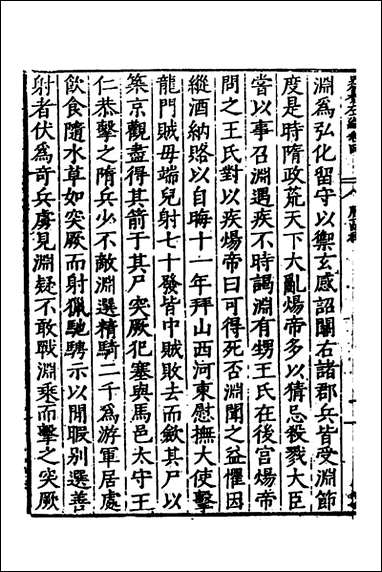 淵為弘化留守以禦玄感詔關右諸郡兵皆受淵節
度是時隋政荒天下大亂煬帝多以猜忌殺戮大臣
嘗以事召淵遇疾不時謁淵有甥王氏在後宫煬帝
問之王氏對以疾煬帝曰可得死否淵聞之益懼因
縱酒納賂以自晦十一年拜山西河東慰撫大使擊
龍門賊毋端兒射七十發皆中賊敗去而斂其尸以
築京觀盡得其箭于其尸突厥犯塞與馬邑太守王
仁恭擊之隋兵少不敵淵選精騎二千為游軍居處
飲食隨水草如突厥而射獵馳騁示以閒暇别選善
射者伏為奇兵虜見淵疑不敢戰淵乘而擊之突厥